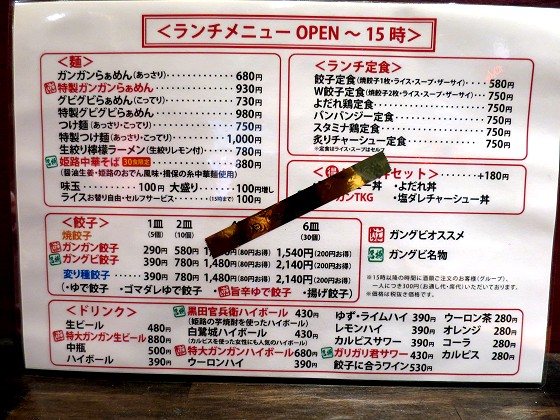 ＜ランチメニュー OPEN ～ 15時＞
＜麺＞
ガンガンらぁめん(あっさり) 680円
特製ガンガンらぁめん 930円
グビグビらぁめん(こってり) 730円
特製グビグビらぁめん 980円
つけ麺(あっさり・こってり) 750円
特製つけ麺(あっさり・こってり) 1,000円
生絞り檸檬ラーメン(生絞りレモン付) 780円
姫路中華そば 880円
(醤油生姜・姫路のおでん風味・揖保の糸中華麺使用)
味玉 100円 大盛り 100円増し
ライスお替り自由・セルフサービス(15時まで) 100円
＜ランチ定食＞
餃子定食(焼餃子1枚・ライス・スープ・ザーサイ) 580円
W餃子定食(焼餃子2枚・ライス・スープ・ザーサイ) 750円
よだれ鶏定食 750円
バンバンジー定食 750円
スタミナ鶏定食 750円
炙りチャーシュー定食 750円
※定食はライス・スープはセルフ
セット＞ +180円
・よだれ丼
TKG ・塩ダレチャーシュー丼
＜餃子＞ 1皿(5個) 2皿(10個) 6皿(30個)
焼餃子
ガンガン餃子 290円 580円 (80円お得) 1,540円(200円お得)
グビグビ餃子 390円 780円 1,480円(80円お得) 2,140円(200円お得)
変り種餃子 390円 780円 1,480円(80円お得) 2,140円(200円お得)
(・ゆで餃子 ・ゴマダレゆで餃子 旨辛ゆで餃子 ・揚げ餃子)
ガングビオススメ
ガングビ名物
※15時以降の時間に酒類ご注文のお客様(グループ)、
一人につき300円(お通し代・席代)いただいております。
※価格は税抜き価格です。
＜ドリンク＞
生ビール 480円
特大ガンガン生ビール 880円
中瓶 500円
ハイボール 390円
黒田官兵衛ハイボール 430円
(姫路の芋焼酎を使ったハイボール)
白鷺城ハイボール 430円
(カルピスを使った女性にも人気のハイボール)
特大ガンガンハイボール 680円
ウーロンハイ 390円
ゆず・ライムハイ 390円
レモンハイ 390円
カルピスサワー 390円
ガリガリ君サワー 430円
餃子に合うワイン 530円
ウーロン茶 280円
オレンジ 280円
コーラ 280円
カルピス 280円